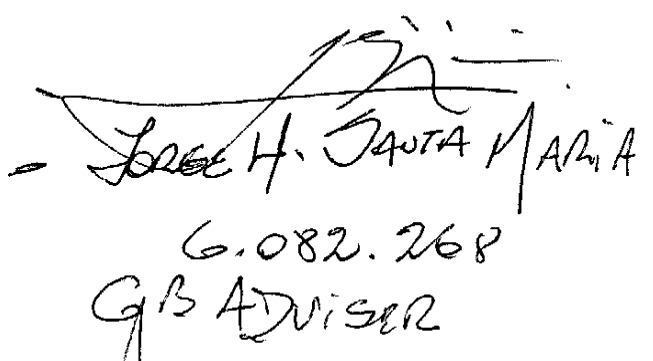 - JORGE H. SANTA MARIA
6.082.268
GB ADVISER